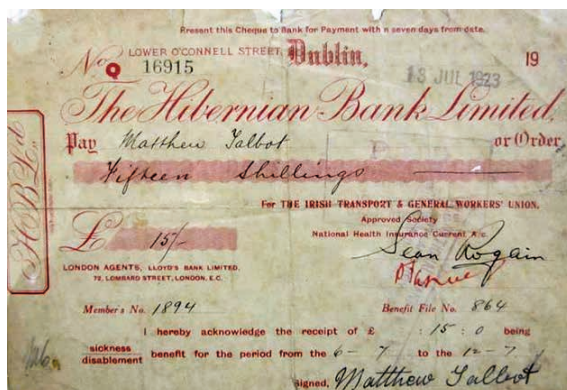 Present this Cheque to Bank for Payment within seven days from date.
LOWER O'CONNELL STREET, Dublin, 19
No Q 16915
13 JUL 1923
The Hibernian Bank Limited.
Pay Matthew Talbot or Order
Fifteen Shillings
For THE IRISH TRANSPORT & GENERAL WORKERS' UNION,
Approved Society
National Health Insurance Current A/c.
£ 15/-
Sean Rogain
LONDON AGENTS, LLOYD'S BANK LIMITED,
72, LOMBARD STREET, LONDON, E.C.
H B Ltd
Member's No. 1894 Benefit File No. 864
I hereby acknowledge the receipt of £ : 15 : 0 being
sickness
disablement benefit for the period from the 6-7 to the 12-7
Signed, Matthew Talbot